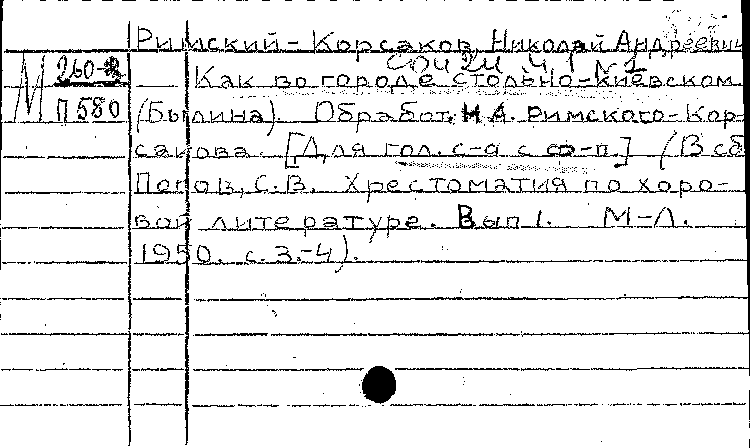 Римский-Корсаков, Николай Андреевич
соч 24 ч 1 №1
М 260-2
П580
Как во городе стольно-киевском
(Былина). Обработ. Н.А. Римского-Кор-
сакова. [Для гол. с-а с ф-п.] (В сб
Попов, С.В. Хрестоматия по хоро-
вой литературе. Вып 1. М-Л.
1950. с. 3.-4).